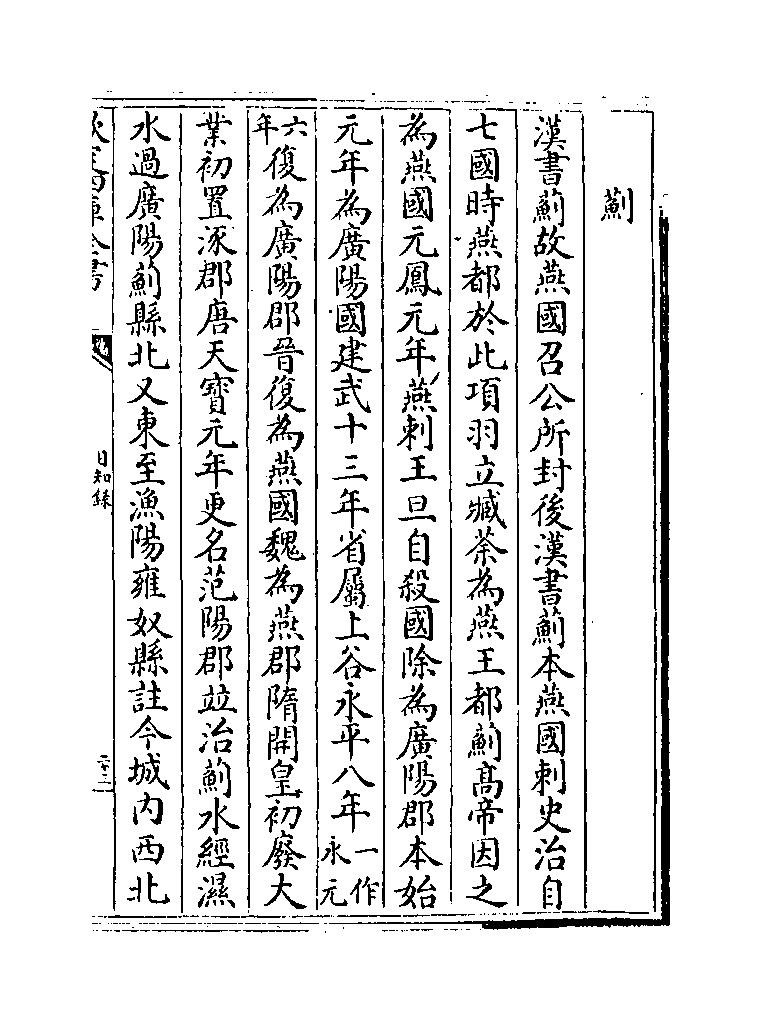 薊
漢書薊故燕國召公所封後漢書薊本燕國刺史治自
七國時燕都於此項羽立臧荼為燕王都薊髙帝因之
為燕國元鳳元年燕刺王旦自殺國除為廣陽郡本始
元年為廣陽國建武十三年省屬上谷永平八年一作永元
六年復為廣陽郡晉復為燕國魏為燕郡隋開皇初廢大
業初置涿郡唐天寶元年更名范陽郡竝治薊水經濕
水過廣陽薊縣北又東至漁陽雍奴縣註今城内西北
日知錄